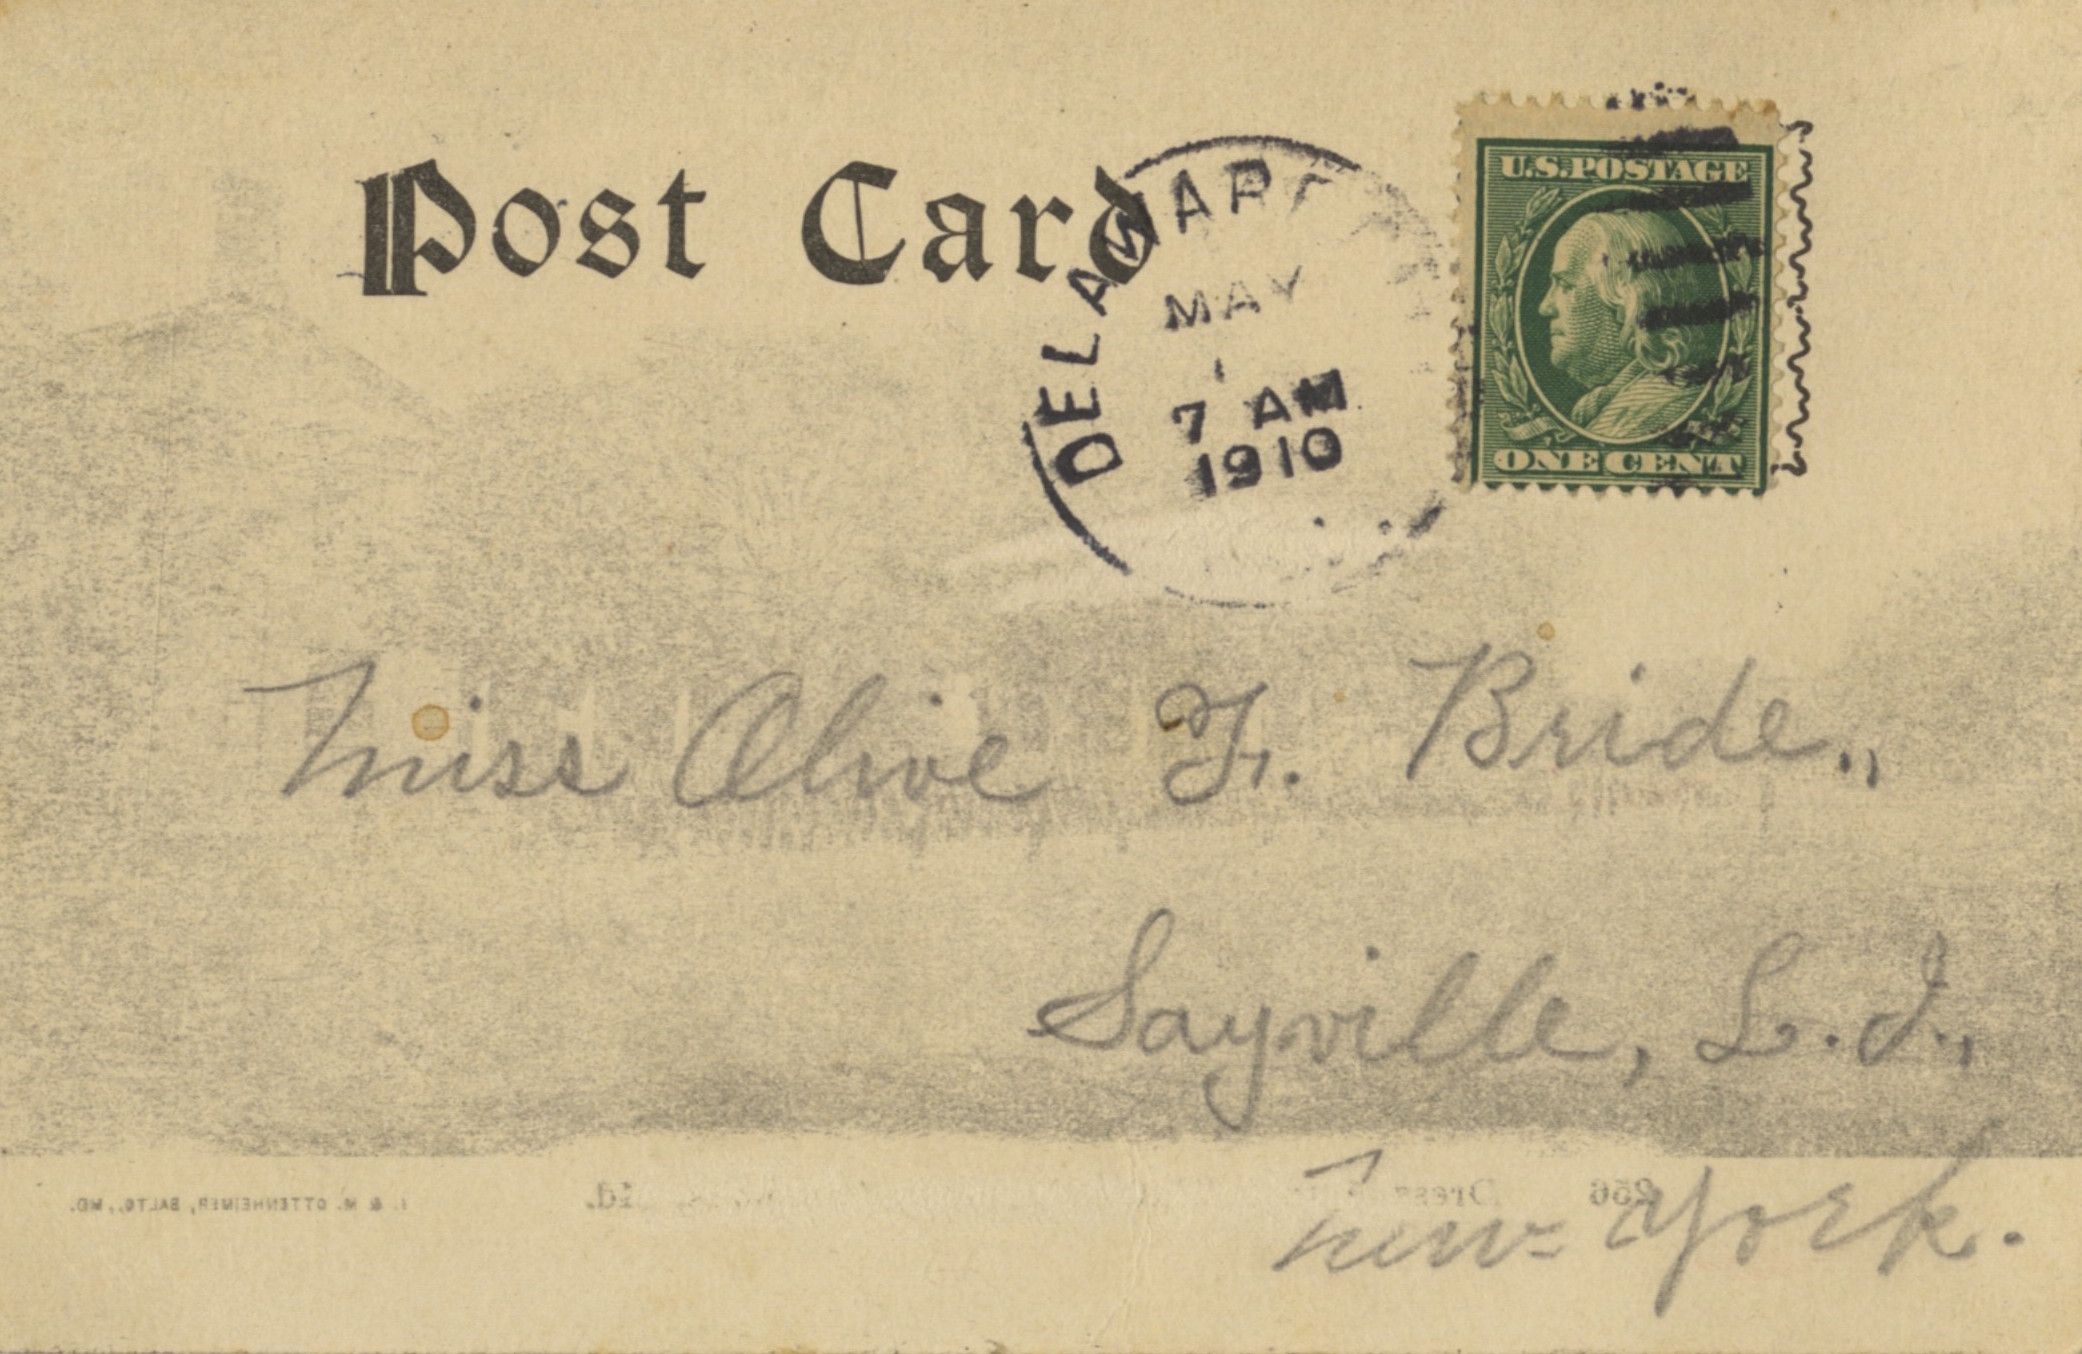 Post Card
DELAWARE
MAY
1
7 AM
1910
U.S. POSTAGE
ONE CENT
Miss Olive F. Bride.,
Sayville, L.I.,
New York.
256
I. & M. OTTENHEIMER, BALTO., MD.